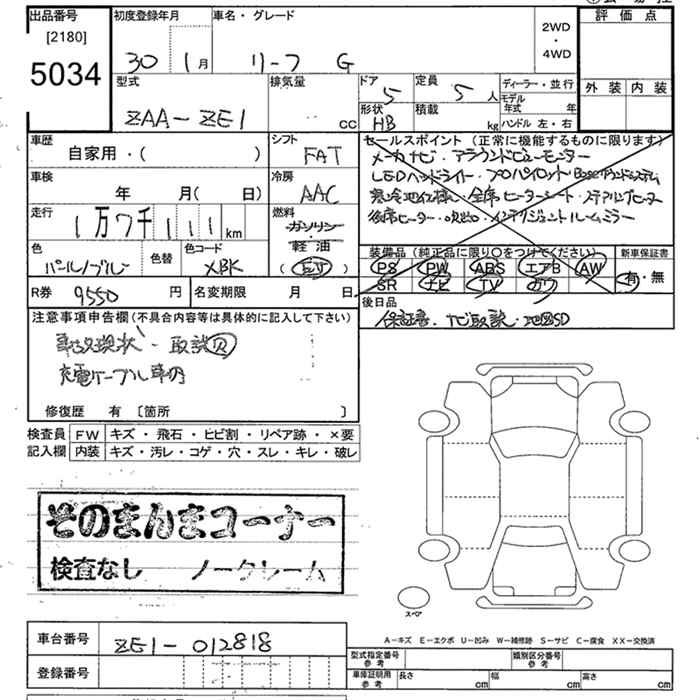 出品番号
[2180]
5034
初度登録年月
30 1月
車名・グレード
リーフ G
2WD
・
4WD
評価点
外装 内装
型式
ZAA-ZE1
排気量
cc
ドア
5
定員
5人
形状
HB
積載
kg
ディーラー・並行
モデル年式 年
ハンドル 左・右
車歴
自家用・( )
シフト
FAT
車検
年 月( 日)
冷房
AAC
走行
1万7千111km
燃料
ガソリン・
軽油
色
パール/ブルー
色替
色コード
XBK
R券
9550円
名変期限 月 日
セールスポイント(正常に機能するものに限ります)
メーカナビ・アラウンドビューモニター
LEDヘッドライト・プロパイロット
全席ヒーターシート・ステアリングヒータ
後席ヒーター・吹出・インテリジェントルームミラー
装備品(純正品に限り○をつけてください)
PS PW ABS エアB AW
SR ナビ TV カワ
新車保証書
有・無
後日品
保証書・ナビ取説・地図SD
注意事項申告欄(不具合内容等は具体的に記入して下さい)
現状・取説
充電ケーブル車内
修復歴 有 [箇所 ]
検査員記入欄
FW キズ・飛石・ヒビ割・リペア跡・×要
内装 キズ・汚レ・コゲ・穴・スレ・キレ・破レ
そのまんまコーナー
検査なし ノークレーム
スペア
A-キズ E-エクボ U-凹み W-補修跡 S-サビ C-腐食 XX-交換済
車台番号
ZE1-012818
登録番号
型式指定番号
参考
類別区分番号
参考
車庫証明用
参考
長さ cm
幅 cm
高さ cm